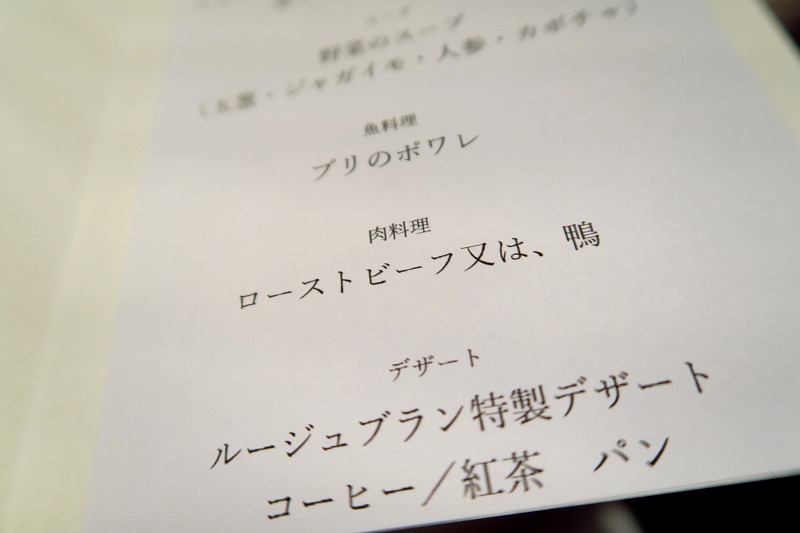 スープ
野菜のスープ
（玉葱・ジャガイモ・人参・カボチャ）
魚料理
ブリのポワレ
肉料理
ローストビーフ又は、鴨
デザート
ルージュブラン特製デザート
コーヒー／紅茶　パン